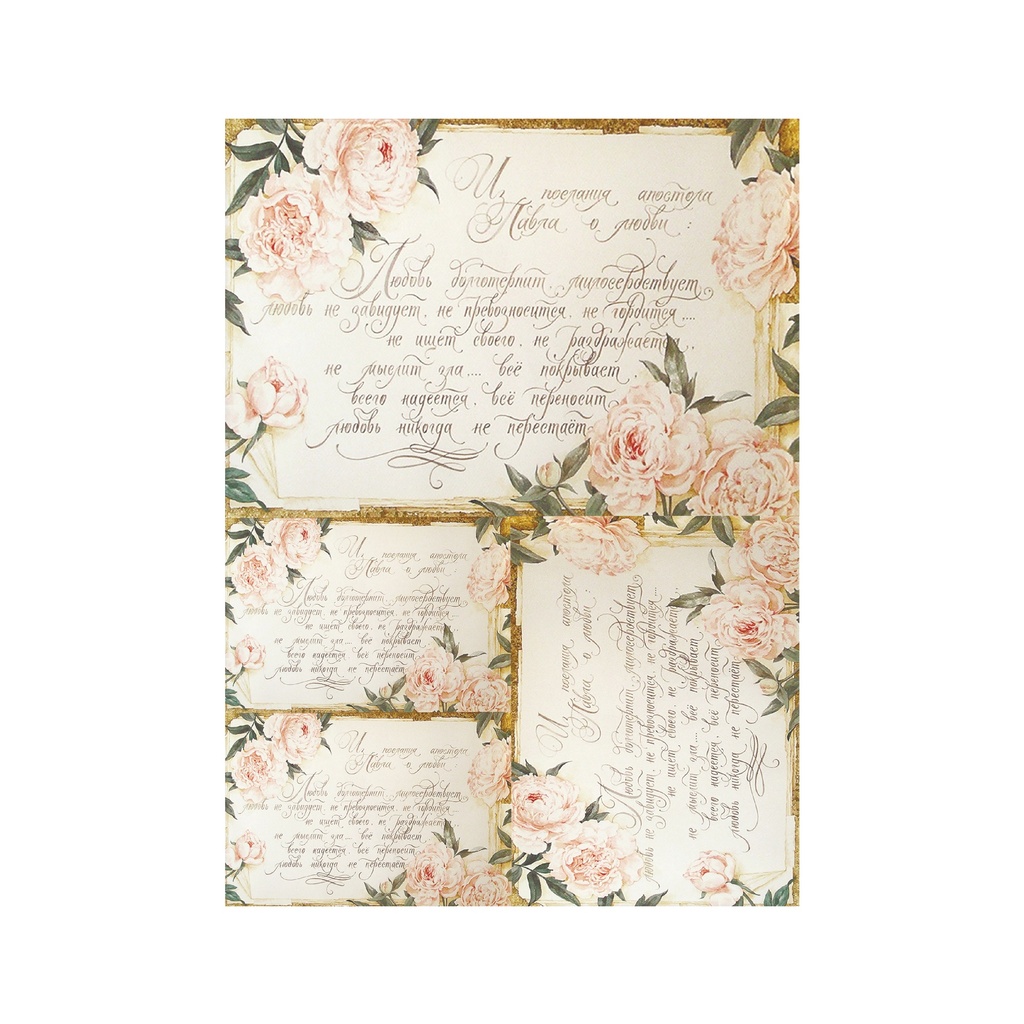 Из послания апостола
Павла о любви:
Любовь долготерпит, милосердствует,
любовь не завидует, не превозносится, не гордится....
не ищет своего, не раздражается,
не мыслит зла.... всё покрывает,
всего надеется, всё переносит,
любовь никогда не перестаёт
Из послания апостола
Павла о любви:
Любовь долготерпит, милосердствует,
любовь не завидует, не превозносится, не гордится....
не ищет своего, не раздражается
не мыслит зла.... всё покрывает
всего надеется, всё переносит,
любовь никогда не перестаёт
Из послания апостола
Павла о любви:
Любовь долготерпит, милосердствует,
любовь не завидует, не превозносится, не гордится....
не ищет своего, не раздражается
не мыслит зла.... всё покрывает
всего надеется, всё переносит,
любовь никогда не перестаёт
Из послания апостола
Павла о любви:
Любовь долготерпит, милосердствует,
любовь не завидует, не превозносится, не гордится....
не ищет своего, не раздражается
не мыслит зла.... всё покрывает
всего надеется, всё переносит,
любовь никогда не перестаёт